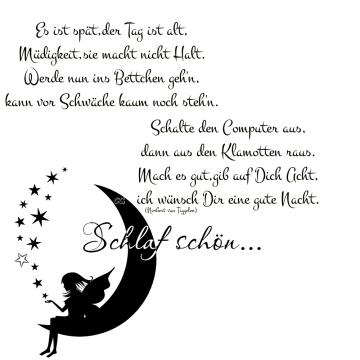 Es ist spät, der Tag ist alt,
Müdigkeit, sie macht nicht Halt.
Werde nun ins Bettchen geh'n,
kann vor Schwäche kaum noch steh'n.
Schalte den Computer aus,
dann aus den Klamotten raus.
Mach es gut, gib auf Dich Acht,
ich wünsch Dir eine gute Nacht.
(Norbert van Tiggelen)
Schlaf schön...